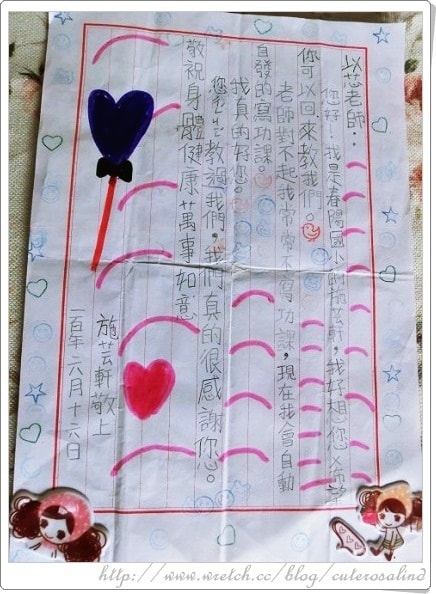 以芯老師：
您好！我是春陽國小的施芸軒，我好想您、希望
你可以回來教我們。
老師對不起我常常不寫功課，現在我會自動
自發的寫功課。
我真的好您。
您教過我們，我們真的很感謝您。
敬祝身體健康 萬事如意
施芸軒敬上
一百年六月十六日
http://www.wretch.cc/blog/cuterosalind